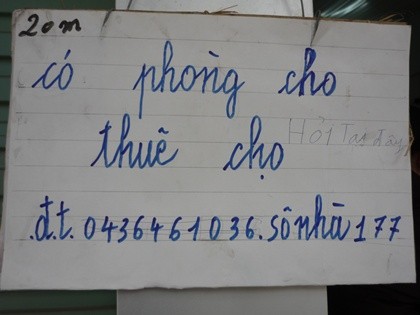 20m
có phòng cho
thuê chọ
Hỏi Tại đây
.đ.t. 0436461036. Số nhà 177